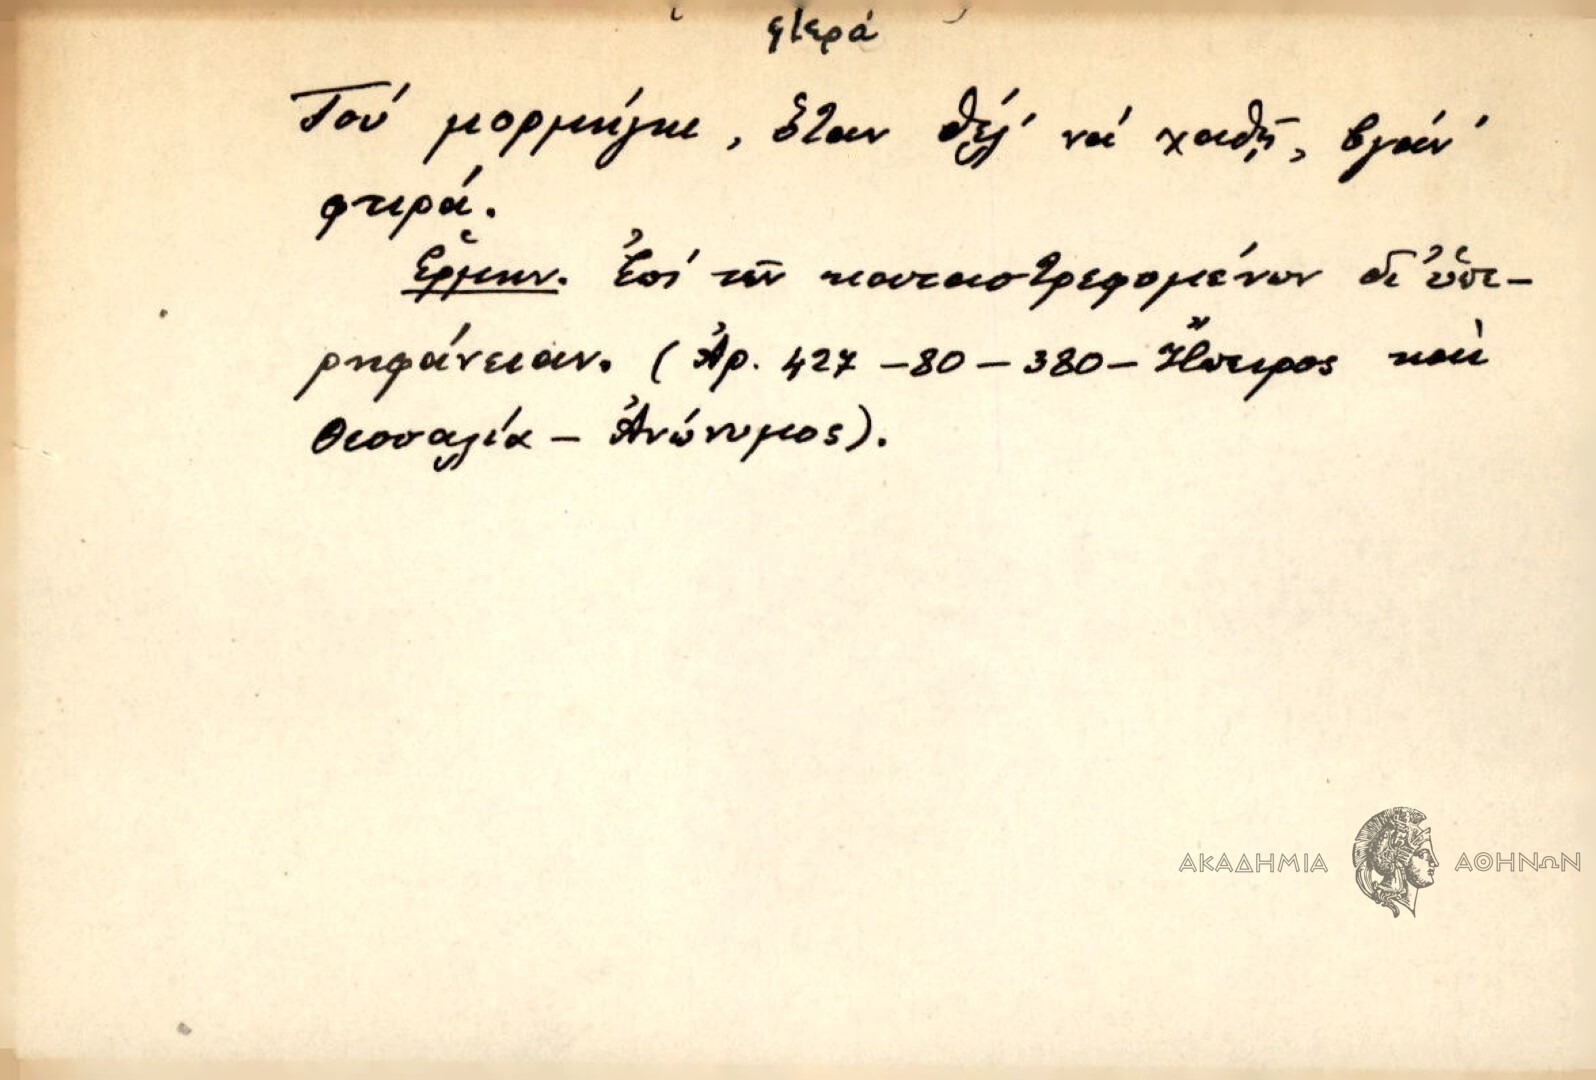 φτερά
Τοὺ μορμήγκι, ὅταν θέλ' νὰ χαθῇ, βγάν'
φτερά.
Ἑρμην. Ἐπὶ τῶν καταστρεφομένων δι' ὑπε-
ρηφάνειαν. (Ἀρ. 427 - 80 - 380 - Ἤπειρος καὶ
Θεσσαλία - Ἀνώνυμος).
ΑΚΑΔΗΜΙΑ ΑΘΗΝΩΝ